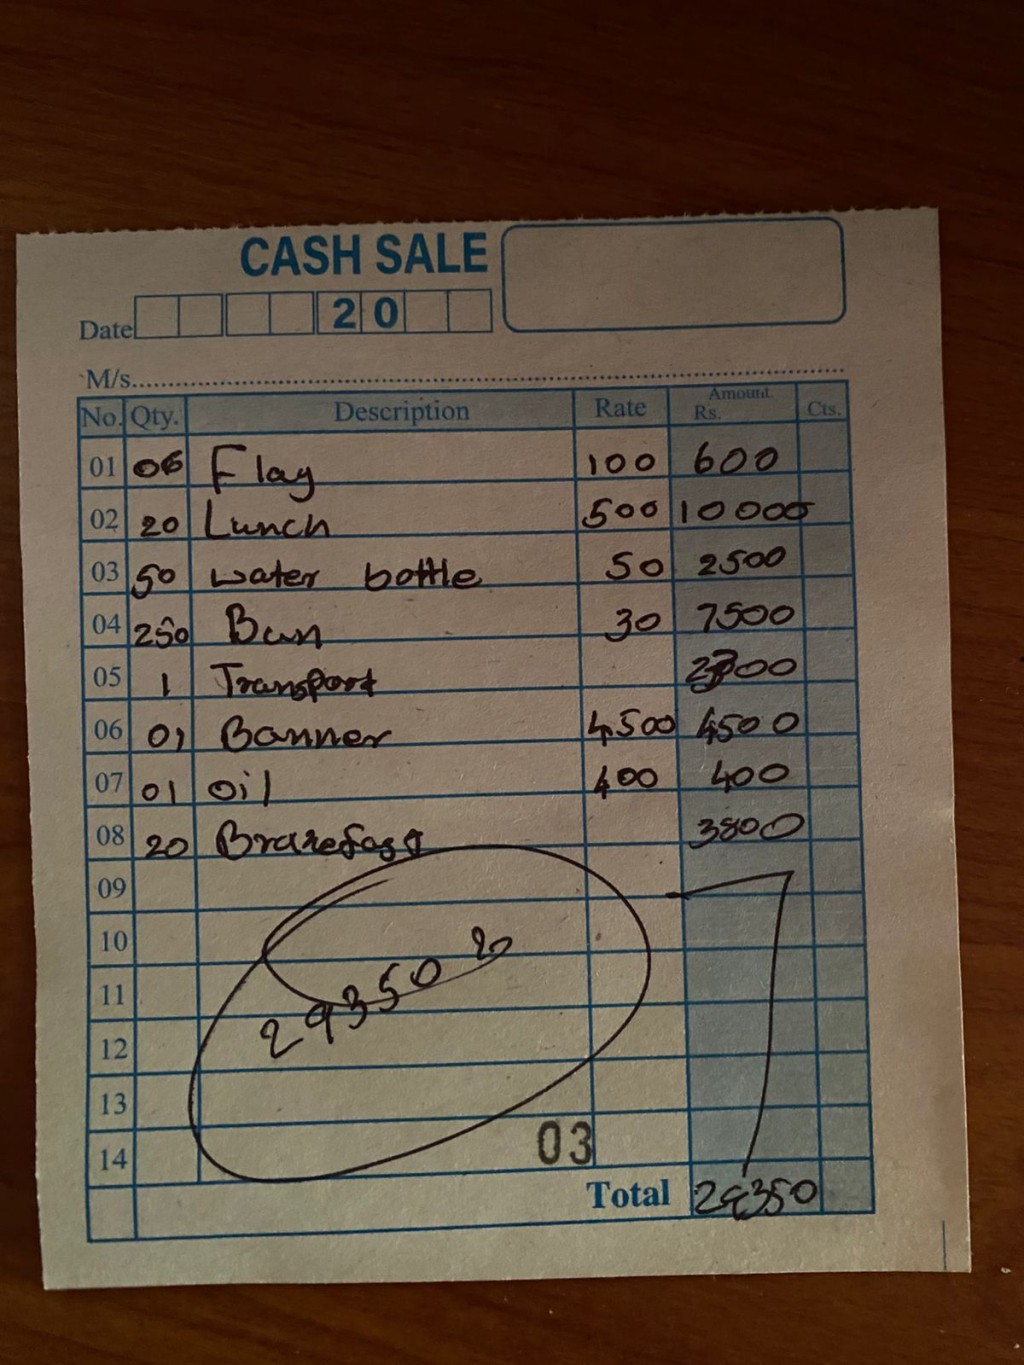 CASH SALE
Date 2 0
M/s
No. Qty. Description Rate Amount Rs. Cts.
01 06 Flag 100 600
02 20 Lunch 500 10000
03 50 water bottle 50 2500
04 250 Bun 30 7500
05 1 Transport
06 01 Banner 4500 4500
07 01 oil 400 400
08 20 Brakefast 3800
09
10
11 29350
12
13
14 03
Total 29350